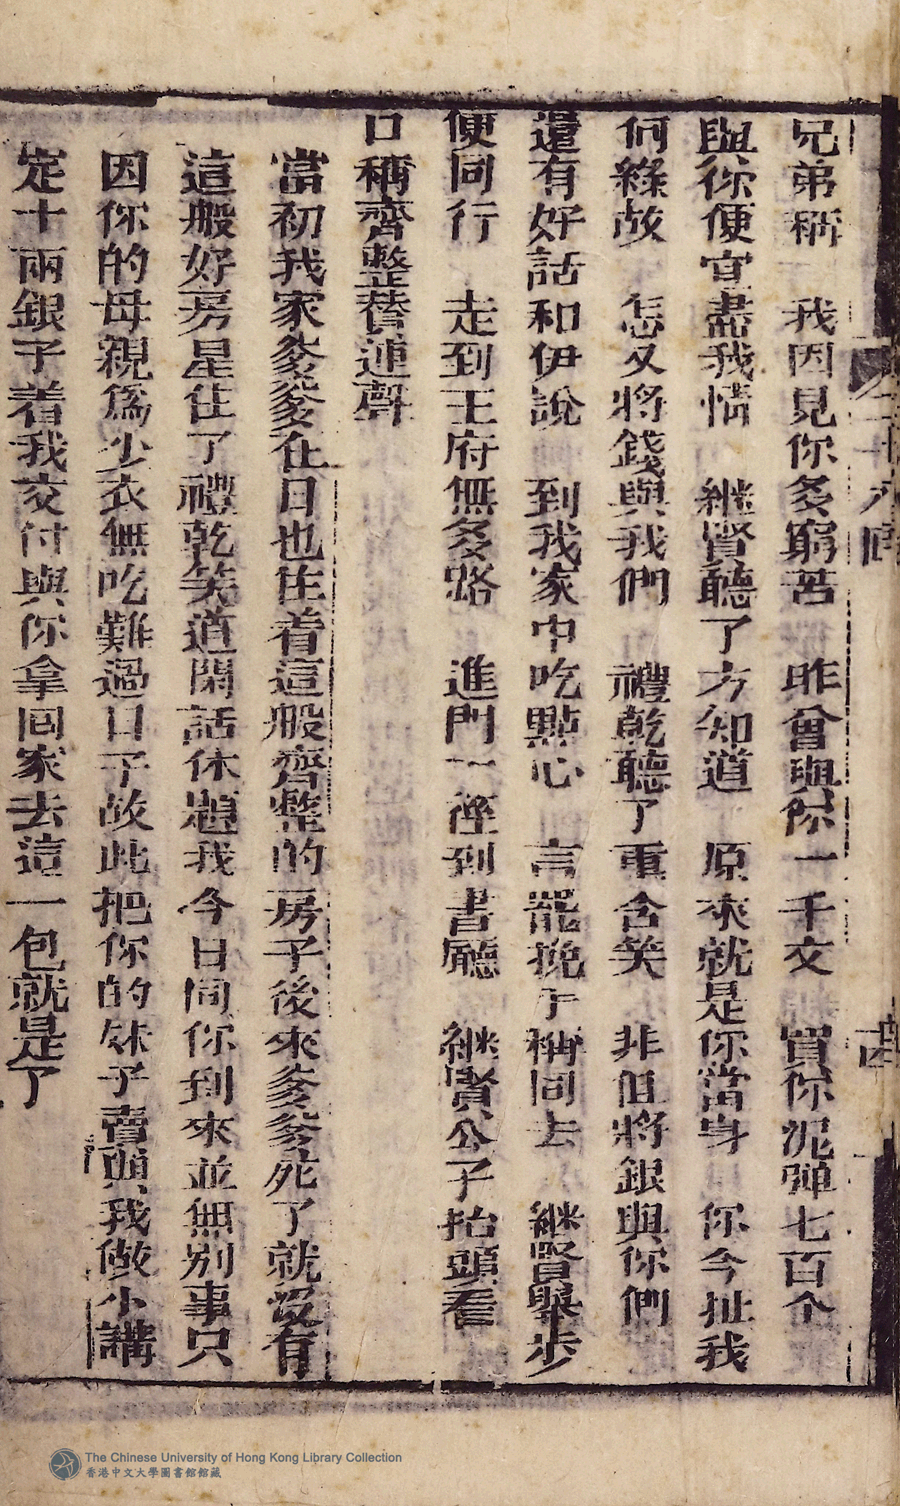 兄弟稱　我因見你多窮苦　昨曾與你一千文　買你泥弹七百个
與你便宜盡我情　継賢聽了方知道　原來就是你當身　你今扯我
何緣故　怎又将錢與我們　禮乾聽了重含笑　非但将銀與你們
還有好話和伊說　到我家中吃點心　言罷挽手稱同去　継賢舉步
便同行　走到王府無多路　進門一徑到書廳　継賢公子抬頭看
口稱齊整替連聲
當初我家爹爹在日也住着這般齊整的房子後來爹爹死了就没有
這般好房屋住了禮乾笑道閑話休題我今日同你到來並無別事只
因你的母親爲少衣無吃難過日子故此把你的妹子賣與我做小講
定十兩銀子着我交付與你拿回家去這一包就是了
The Chinese University of Hong Kong Library Collection
香港中文大學圖書館館藏